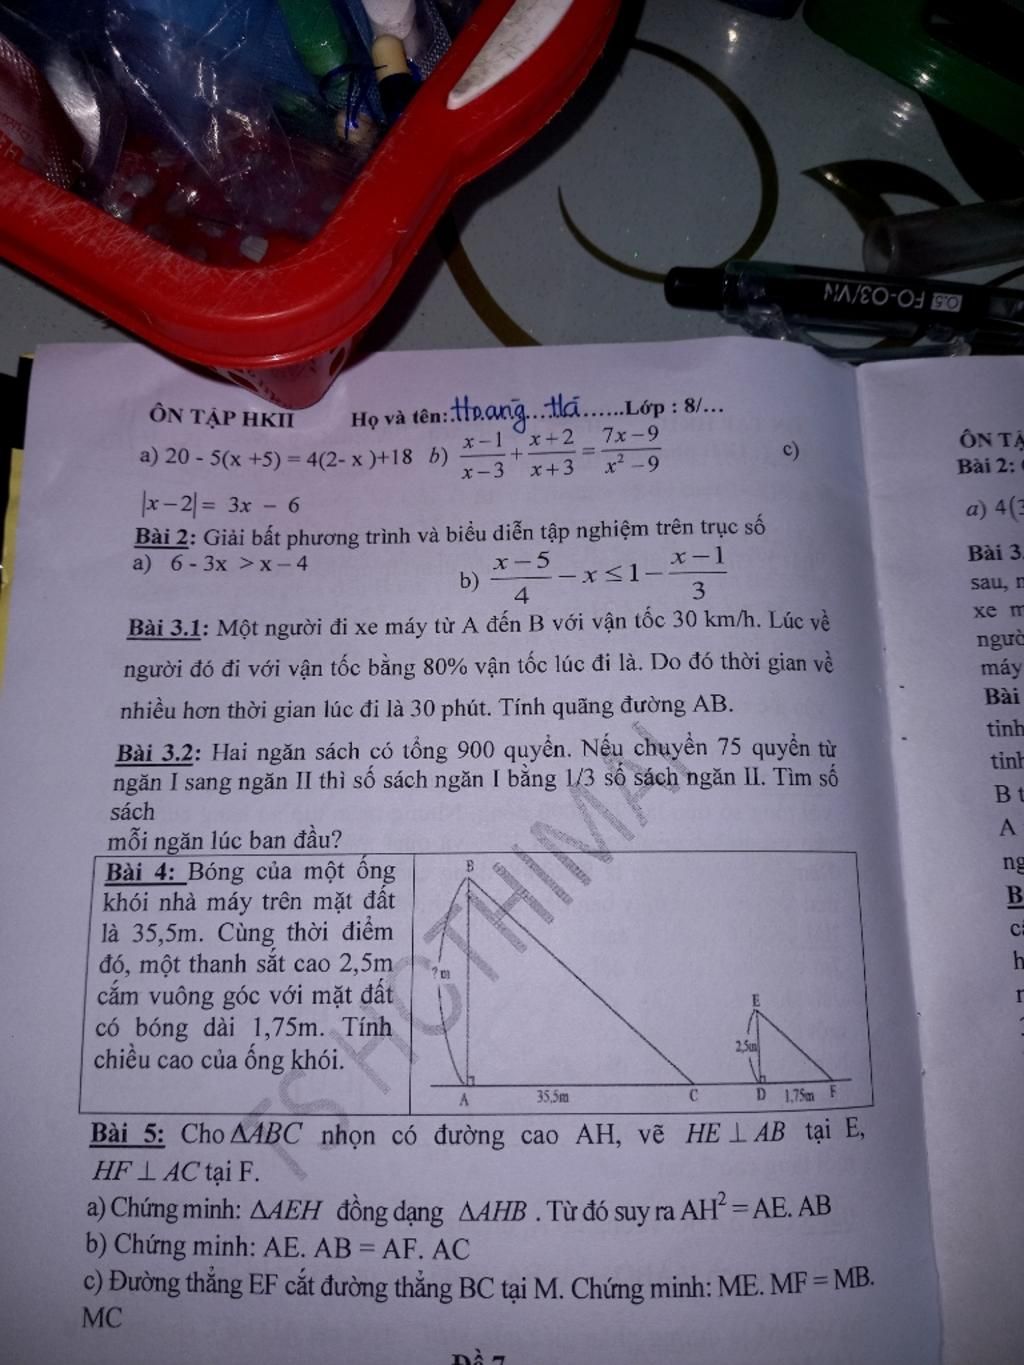 0.5 FO-03/VN
ÔN TẬP HKII Họ và tên:..Hoàng...Hà......Lớp : 8/...
a) 20 - 5(x +5) = 4(2- x )+18 b) \frac{x-1}{x-3} + \frac{x+2}{x+3} = \frac{7x-9}{x^2-9} c)
|x-2| = 3x - 6
Bài 2: Giải bất phương trình và biểu diễn tập nghiệm trên trục số
a) 6 - 3x > x – 4 b) \frac{x-5}{4} - x ≤ 1 - \frac{x-1}{3}
Bài 3.1: Một người đi xe máy từ A đến B với vận tốc 30 km/h. Lúc về
người đó đi với vận tốc bằng 80% vận tốc lúc đi là. Do đó thời gian về
nhiều hơn thời gian lúc đi là 30 phút. Tính quãng đường AB.
Bài 3.2: Hai ngăn sách có tổng 900 quyển. Nếu chuyển 75 quyển từ
ngăn I sang ngăn II thì số sách ngăn I bằng 1/3 số sách ngăn II. Tìm số
sách
mỗi ngăn lúc ban đầu?
Bài 4: Bóng của một ống
khói nhà máy trên mặt đất
là 35,5m. Cùng thời điểm
đó, một thanh sắt cao 2,5m
cắm vuông góc với mặt đất
có bóng dài 1,75m. Tính
chiều cao của ống khói.
B
? m
E
2,5m
A 35,5m C D 1,75m F
TS HOTHIMAI
Bài 5: Cho ΔABC nhọn có đường cao AH, vẽ HE ⊥ AB tại E,
HF ⊥ AC tại F.
a) Chứng minh: ΔAEH đồng dạng ΔAHB . Từ đó suy ra AH² = AE. AB
b) Chứng minh: AE. AB = AF. AC
c) Đường thẳng EF cắt đường thẳng BC tại M. Chứng minh: ME. MF = MB.
MC
Đề 7
ÔN TẬ
Bài 2:
a) 4(3
Bài 3.
sau,
xe m
máy
Bài
tỉnh
tỉnh
B t
A
ng